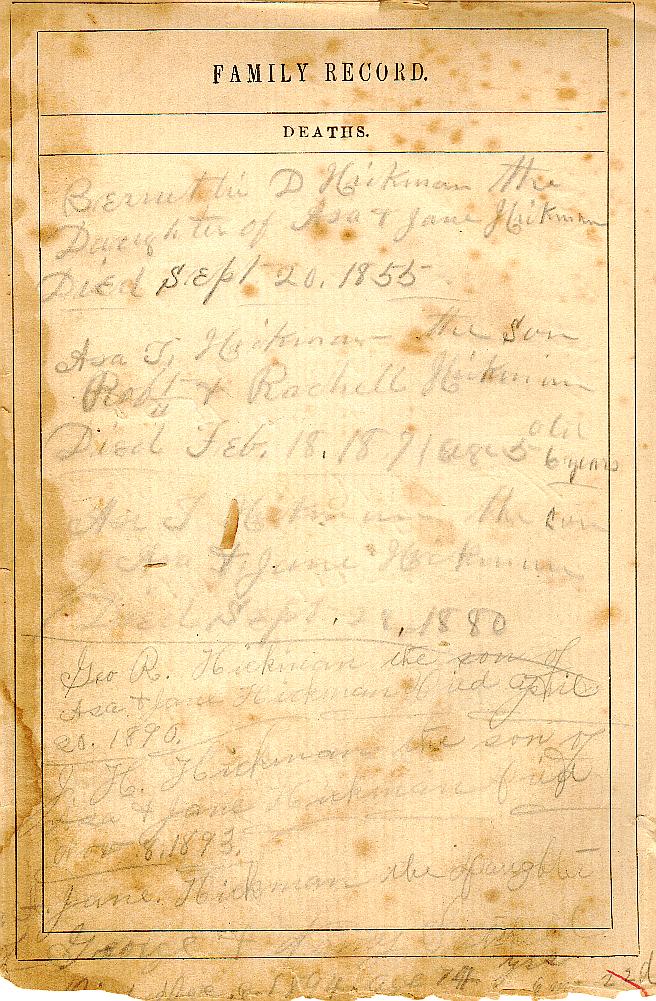 FAMILY RECORD.
DEATHS.
D Hickman the
Daughter of Asa & Jane Hickman
Died Sept 20. 1855
Asa T. Hickman the son
Robt & Rachell Hickman
old
Died Feb. 18. 1871 age 56 years
Asa T Hickman the son
Asa & Jane Hickman
Died Sept 1880
Geo R. Hickman the son of
Asa & Jane Hickman Died april
20. 1890.
J. H. Hickman the son of
Asa & Jane Hickman Died
Nov 8, 1893.
Jane. Hickman the daughter
George &
Died 22d